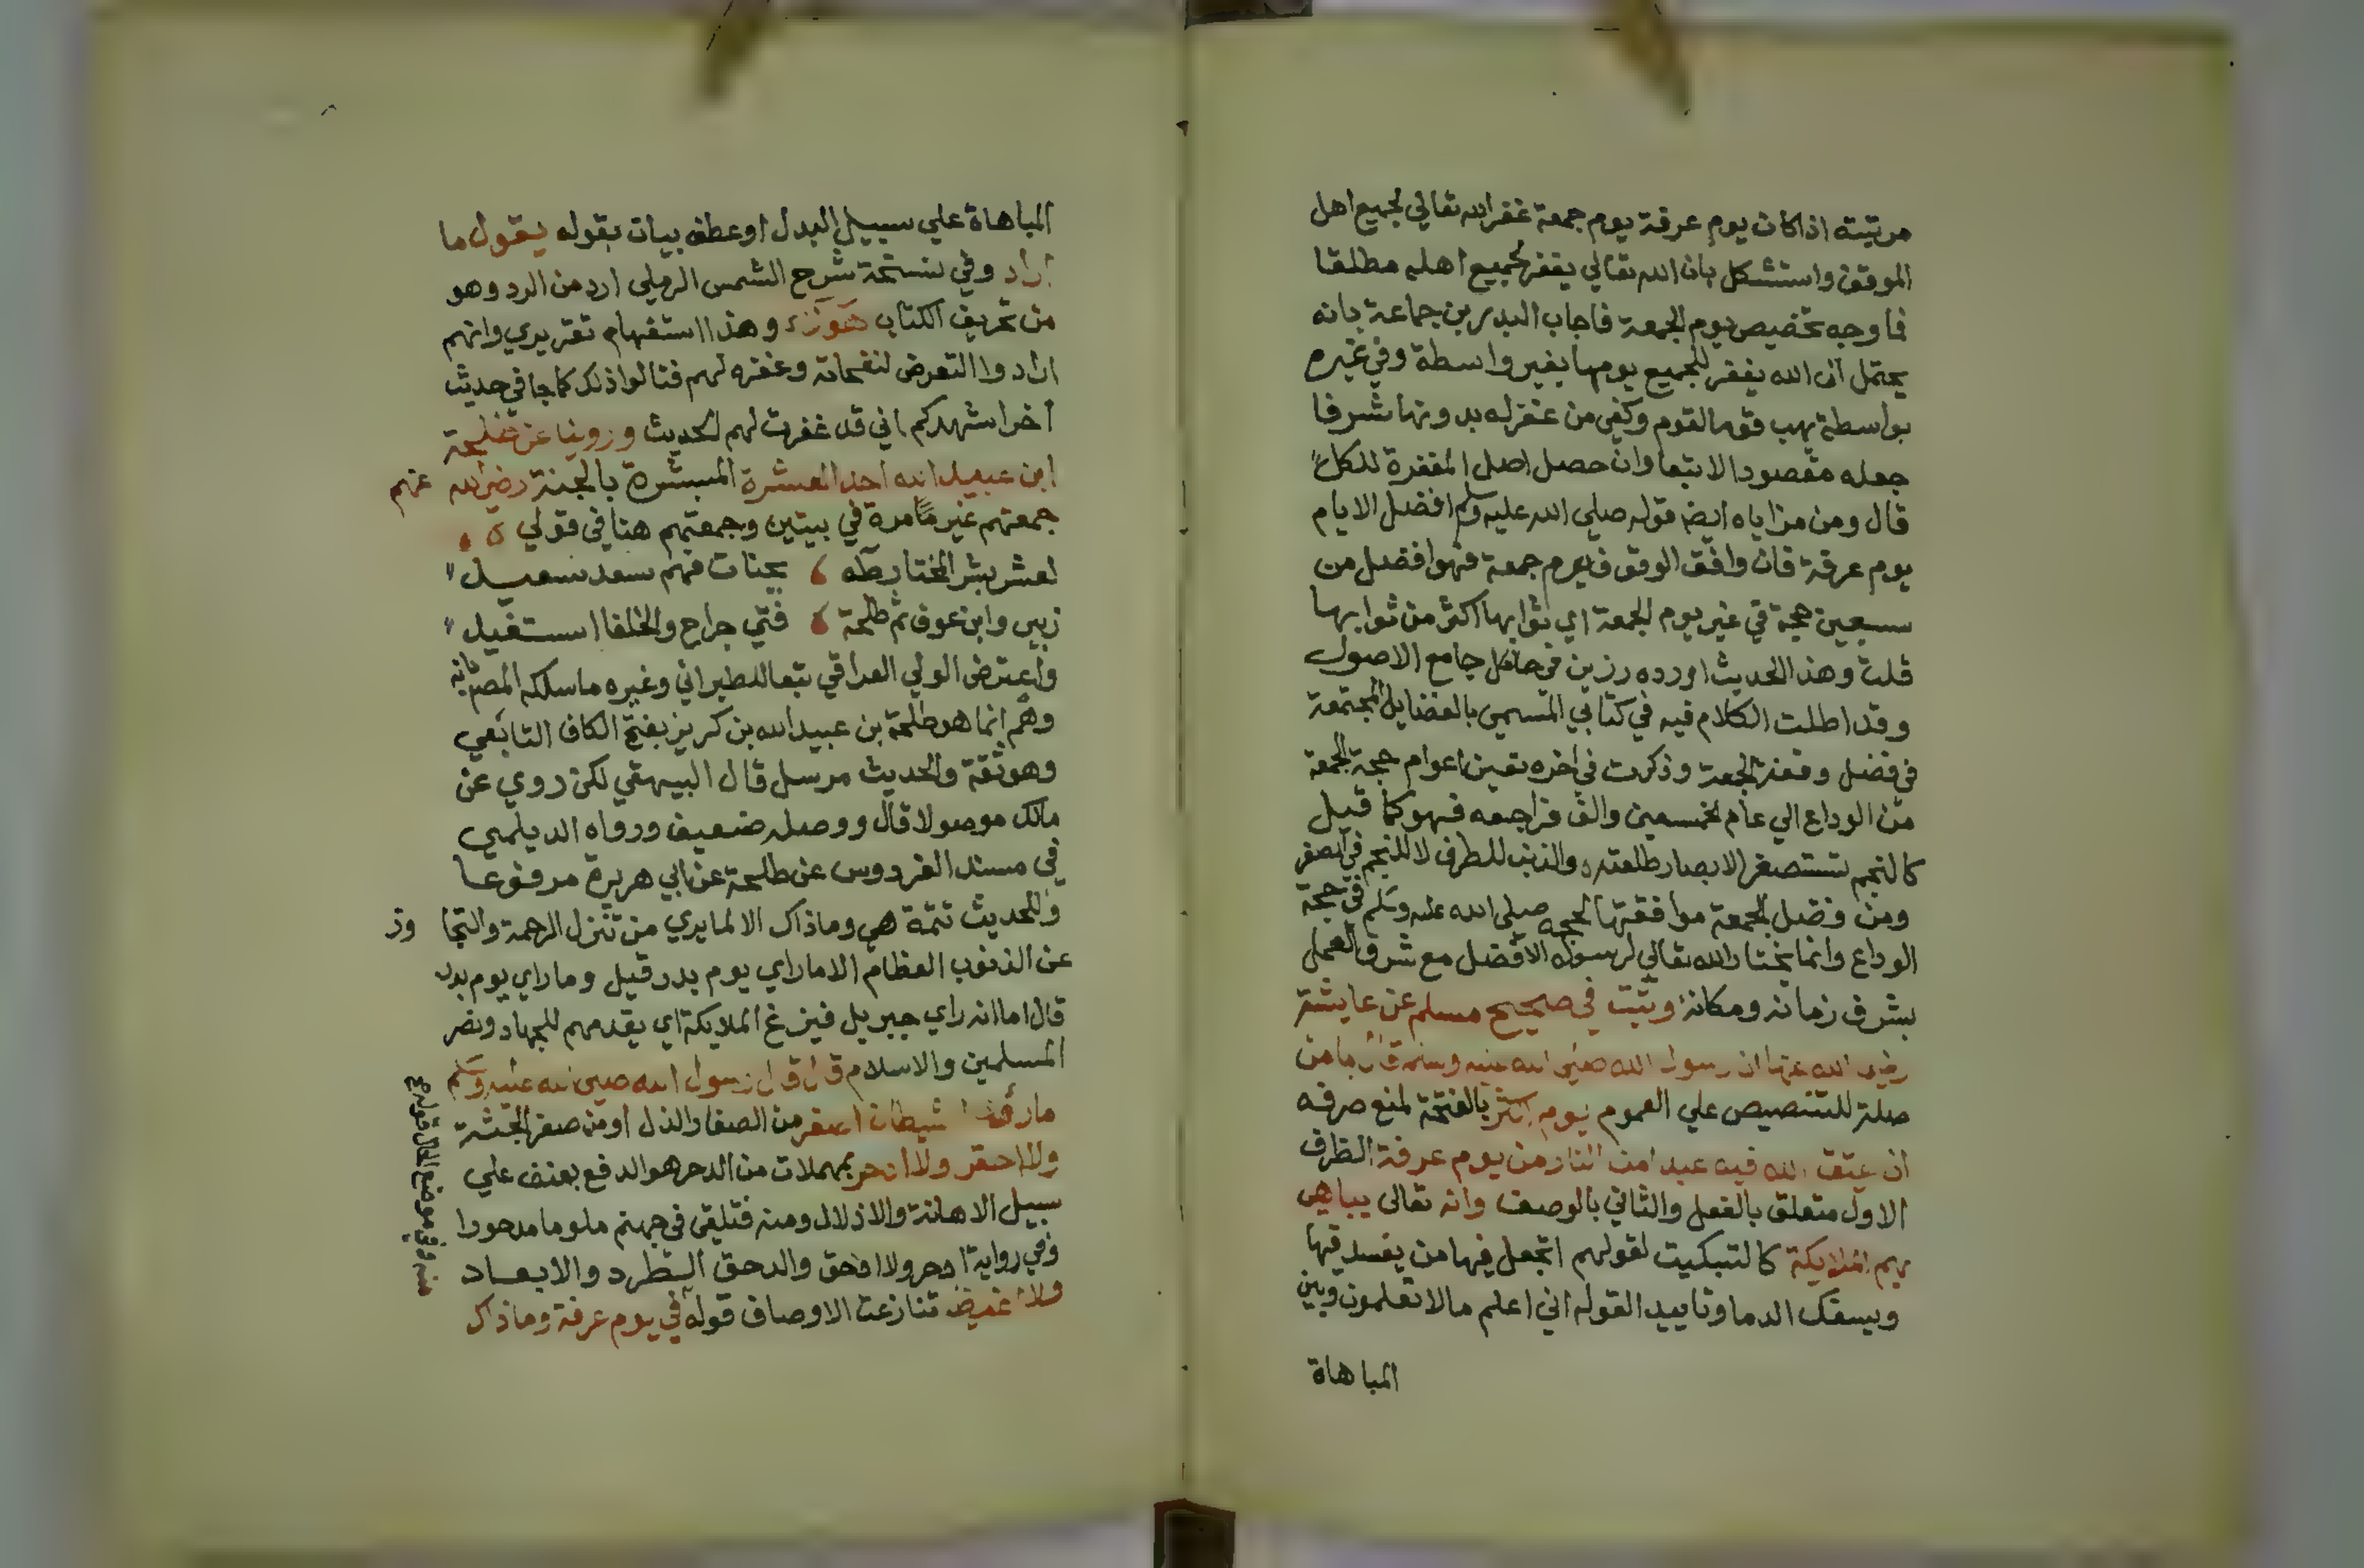 مرتبته اذا كان يوم عرفة يوم جمعة غفر الله تعالي لجميع اهل
الموقف واستشكل بان الله تعالي يغفر لجميع اهله مطلقا
فما وجه تخصيص يوم الجمعة فاجاب البدر بن جماعة بانه
يحتمل ان الله يغفر للجميع يومها بغير واسطة وفي غيره
بواسطة يهب قوما لقوم وكفى من غفر له بدونها شرفا
جعله مقصودا لا تبعا وان حصل اصل المغفرة للكل
قال ومن مزاياه ايضا قوله صلي الله عليه وسلم افضل الايام
يوم عرفة فان وافق الوقوف يوم جمعة فهو افضل من
سبعين حجة في غير يوم الجمعة اي ثوابها اكثر من ثوابها
قلت وهذا الحديث اورده رزين في جامع الاصول
وقد اطلت الكلام فيه في كتابي المسمى بالفضايل المجتمعة
في فضل وقفة الجمعة وذكرت في اخره تعيين اعوام حجة الجمعة
من الوداع الي عام خمسين والف فراجعه فهو كما قيل
كالنجم تستصغر الابصار طلعته والذنب للطرف لا للنجم في الصغر
ومن فضل الجمعة موافقتها لحجه صلى الله عليه وسلم في حجة
الوداع وانما يختار الله تعالي لرسوله الافضل مع شرف العمل
بشرف زمانه ومكانه وثبت في صحيح مسلم عن عايشة
رضي الله عنها ان رسول الله صلى الله عليه وسلم قال ما من
صلة للتنصيص علي العموم يوم اكثر بالفتحة لمنع صرفه
ان يعتق الله فيه عبدا من النار من يوم عرفة الظرف
الاول متعلق بالفعل والثاني بالوصف وانه تعالى يباهي
بهم الملايكة كالتبكيت لقولهم اتجعل فيها من يفسد فيها
ويسفك الدما وتاييد القوله اني اعلم مالا تعلمون وبين
المباهاة
المباهاة علي سبيل البدل او عطف بيان بقوله يقول ما
اراد وفي نسخة شرح الشمس الرملي ارد من الرد وهو
من تحريف الكتاب هولاء وهذا استفهام تقريري وانهم
ارادوا التعرض لنفحاته وغفره لهم فقالوا ذلك كما جا في حديث
اخر اشهدكم اني قد غفرت لهم الحديث وروينا عن طلحة
ابن عبيد الله احد العشرة المبشرة بالجنة رضي الله عنهم
جمعتهم غير ما مرة في بيتين وجمعتهم هنا في قولي
لعشر بشر المختار طه بجنات فهم سعد سعيد
زبير وابن عوف ثم طلحة فتي جراح والخلفا استفيد
واعترض الولي العراقي تبعا للطبراني وغيره ما سلكه المص بانه
وهم انما هو طلحة بن عبيد الله بن كريز بفتح الكاف التابعي
وهو ثقة والحديث مرسل قال البيهقي لكن روي عن
مالك موصولا قال ووصله ضعيف ورواه الديلمي
في مسند الفردوس عن طلحة عن ابي هريرة مرفوعا
وللحديث تتمة هي وما ذاك الا لما يري من تنزل الرحمة والتجاوز
عن الذنوب العظام الا ما راي يوم بدر قيل وما راي يوم بدر
قال اما انه راي جبريل فيزع الملايكة اي يقدمهم للجهاد ونصر
المسلمين والاسلام قال قال رسول الله صلى الله عليه وسلم
ما رئي الشيطان اصغر من الصغار والذل او من صغر الجثة
ولا احقر ولا ادحر بمهملات من الدحر هو الدفع بعنف علي
سبيل الاهانة والاذلال ومنه فتلقي في جهنم ملوما مدحورا
وفي رواية ادحر ولا ادحق والدحق الطرد والابعاد
ولا اغيظ تنازعت الاوصاف قوله في يوم عرفة وما ذاك